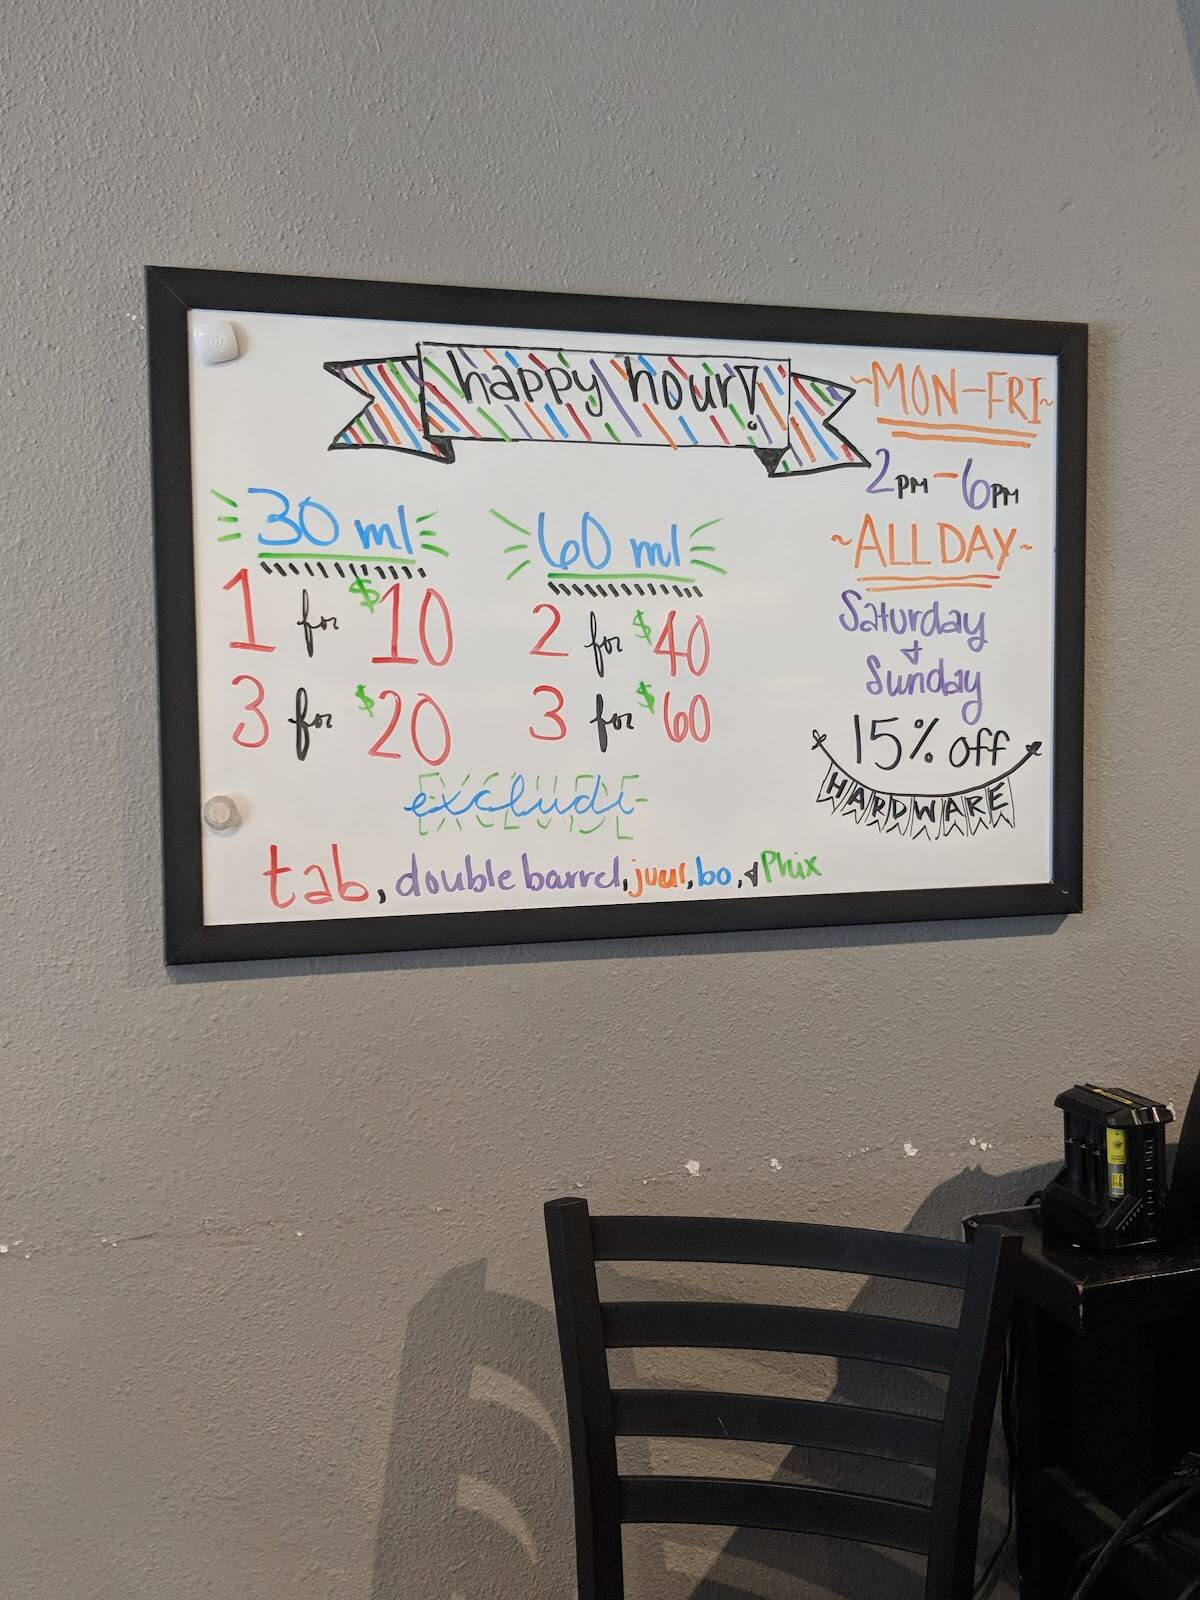 happy hour!
~MON-FRI~
2PM-6PM
~ALL DAY~
Saturday
+
Sunday
15% off
HARDWARE
30 ml
1 for $10
3 for $20
60 ml
2 for $40
3 for $60
EXCLUDE
tab, double barrel, juul, bo, + Phix